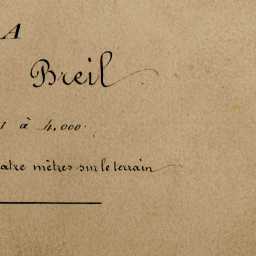 A
Breil
1 à 4.000.
mètres sur le terrain